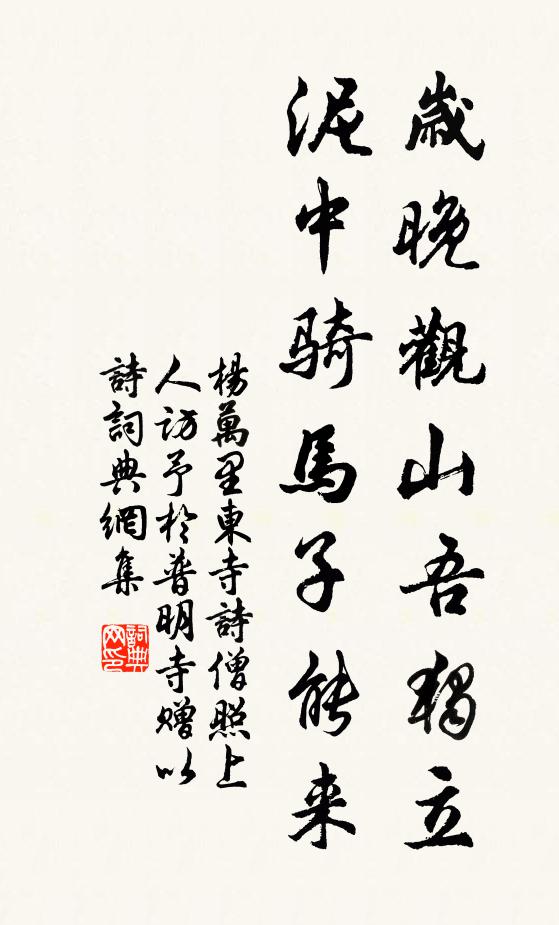 歲晚觀山吾獨立
泥中騎馬子能来
楊萬里東寺詩僧照上
人訪予於普明寺贈以
詩詞典網集
詞典
网印